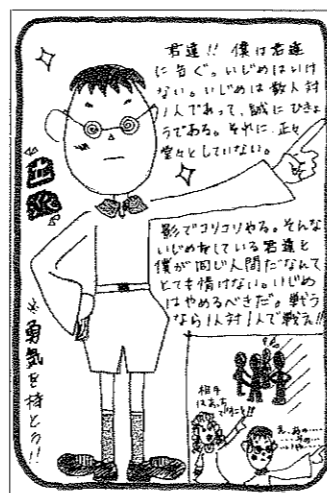 君達!! 僕は君達
に告ぐ。いじめはいけ
ない。いじめは数人対
1人であって、誠にひきょ
うである。それに、正々
堂々としていない。
影でコソコソやる。そんな
いじめをしている君達と
僕が同じ人間だなんて
とても情けない。いじめ
はやめるべきだ。戦う
なら1人対1人で戦え!!
勇気を持とう!!
相手
はあっち
ですこと!!